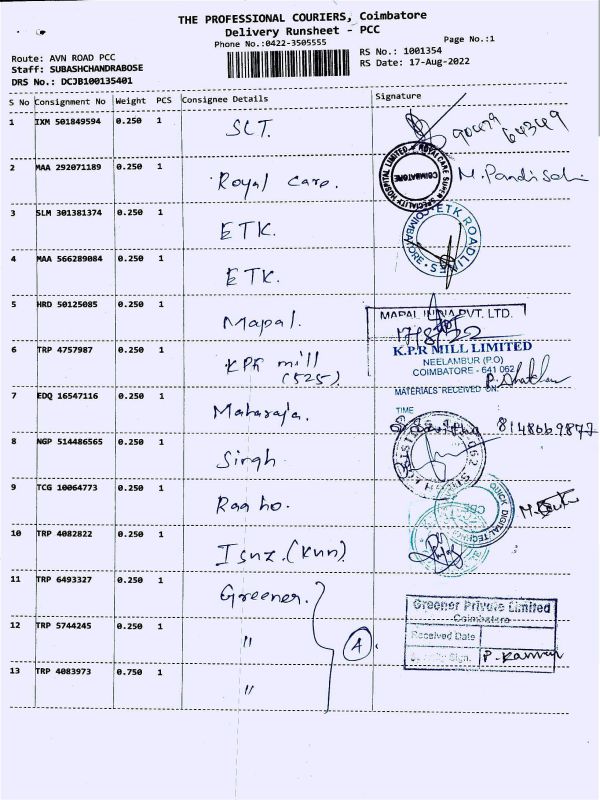 THE PROFESSIONAL COURIERS, Coimbatore
Delivery Runsheet - PCC
Phone No.:0422-3505555
Page No.:1
Route: AVN ROAD PCC
Staff: SUBASHCHANDRABOSE
DRS No.: DCJB100135401
RS No.: 1001354
RS Date: 17-Aug-2022
S No Consignment No Weight PCS Consignee Details Signature
1 IXM 501849594 0.250 1 SLT. 90479 64349
2 MAA 292071189 0.250 1 Royal Care. ROYALCARE SUPER SPECIALITY HOSPITAL LIMITED COIMBATORE
3 SLM 301381374 0.250 1 ETK. ETK ROADLI
4 MAA 566289084 0.250 1 ETK.
5 HRD 50125085 0.250 1 Mapal. MAPAL INDIA PVT. LTD.
17/8/22
6 TRP 4757987 0.250 1 KPR mill (525) K.P.R MILL LIMITED
NEELAMBUR (P.O)
COIMBATORE - 641 062
MATERIALS RECEIVED ON:
TIME
7 EDQ 16547116 0.250 1 Maharaja. 8148669877
8 NGP 514486565 0.250 1 Singh.
9 TCG 10064773 0.250 1 Raaho. QUICK DIGITAL CBE
10 TRP 4082822 0.250 1 Isuz. (Kun)
11 TRP 6493327 0.250 1 Greener. Greener Private Limited
Coimbatore
12 TRP 5744245 0.250 1 " A Received Date
Security Sign.
13 TRP 4083973 0.750 1 "